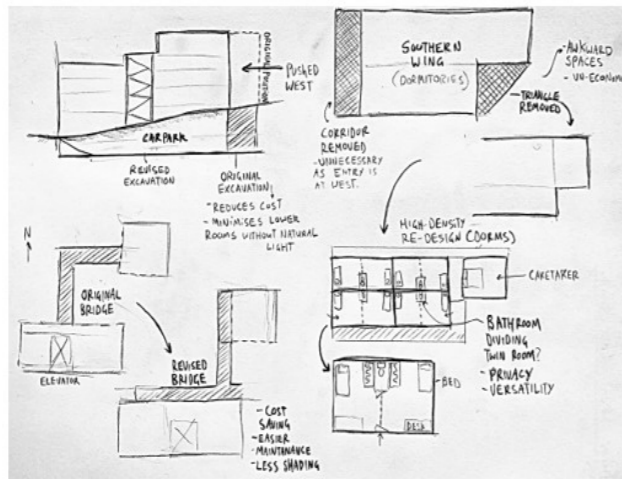 ORIGINAL POSITION
PUSHED
WEST
CARPARK
REVISED
EXCAVATION
ORIGINAL
EXCAVATION
- REDUCES COST
- MINIMISES LOWER
ROOMS WITHOUT NATURAL
LIGHT
SOUTHERN
WING
(DORMITORIES)
- AWKWARD
SPACES
- UN-ECONOM
TRIANGLE
REMOVED
CORRIDOR
REMOVED
- UNNECESSARY
AS ENTRY IS
AT WEST.
HIGH-DENSITY
RE-DESIGN (DORMS)
CARETAKER
BATHROOM
DIVIDING
TWIN ROOM?
- PRIVACY
- VERSATILITY
BED
DESK
N
ORIGINAL
BRIDGE
ELEVATOR
REVISED
BRIDGE
- COST
SAVING
- EASIER
MAINTENANCE
- LESS SHADING